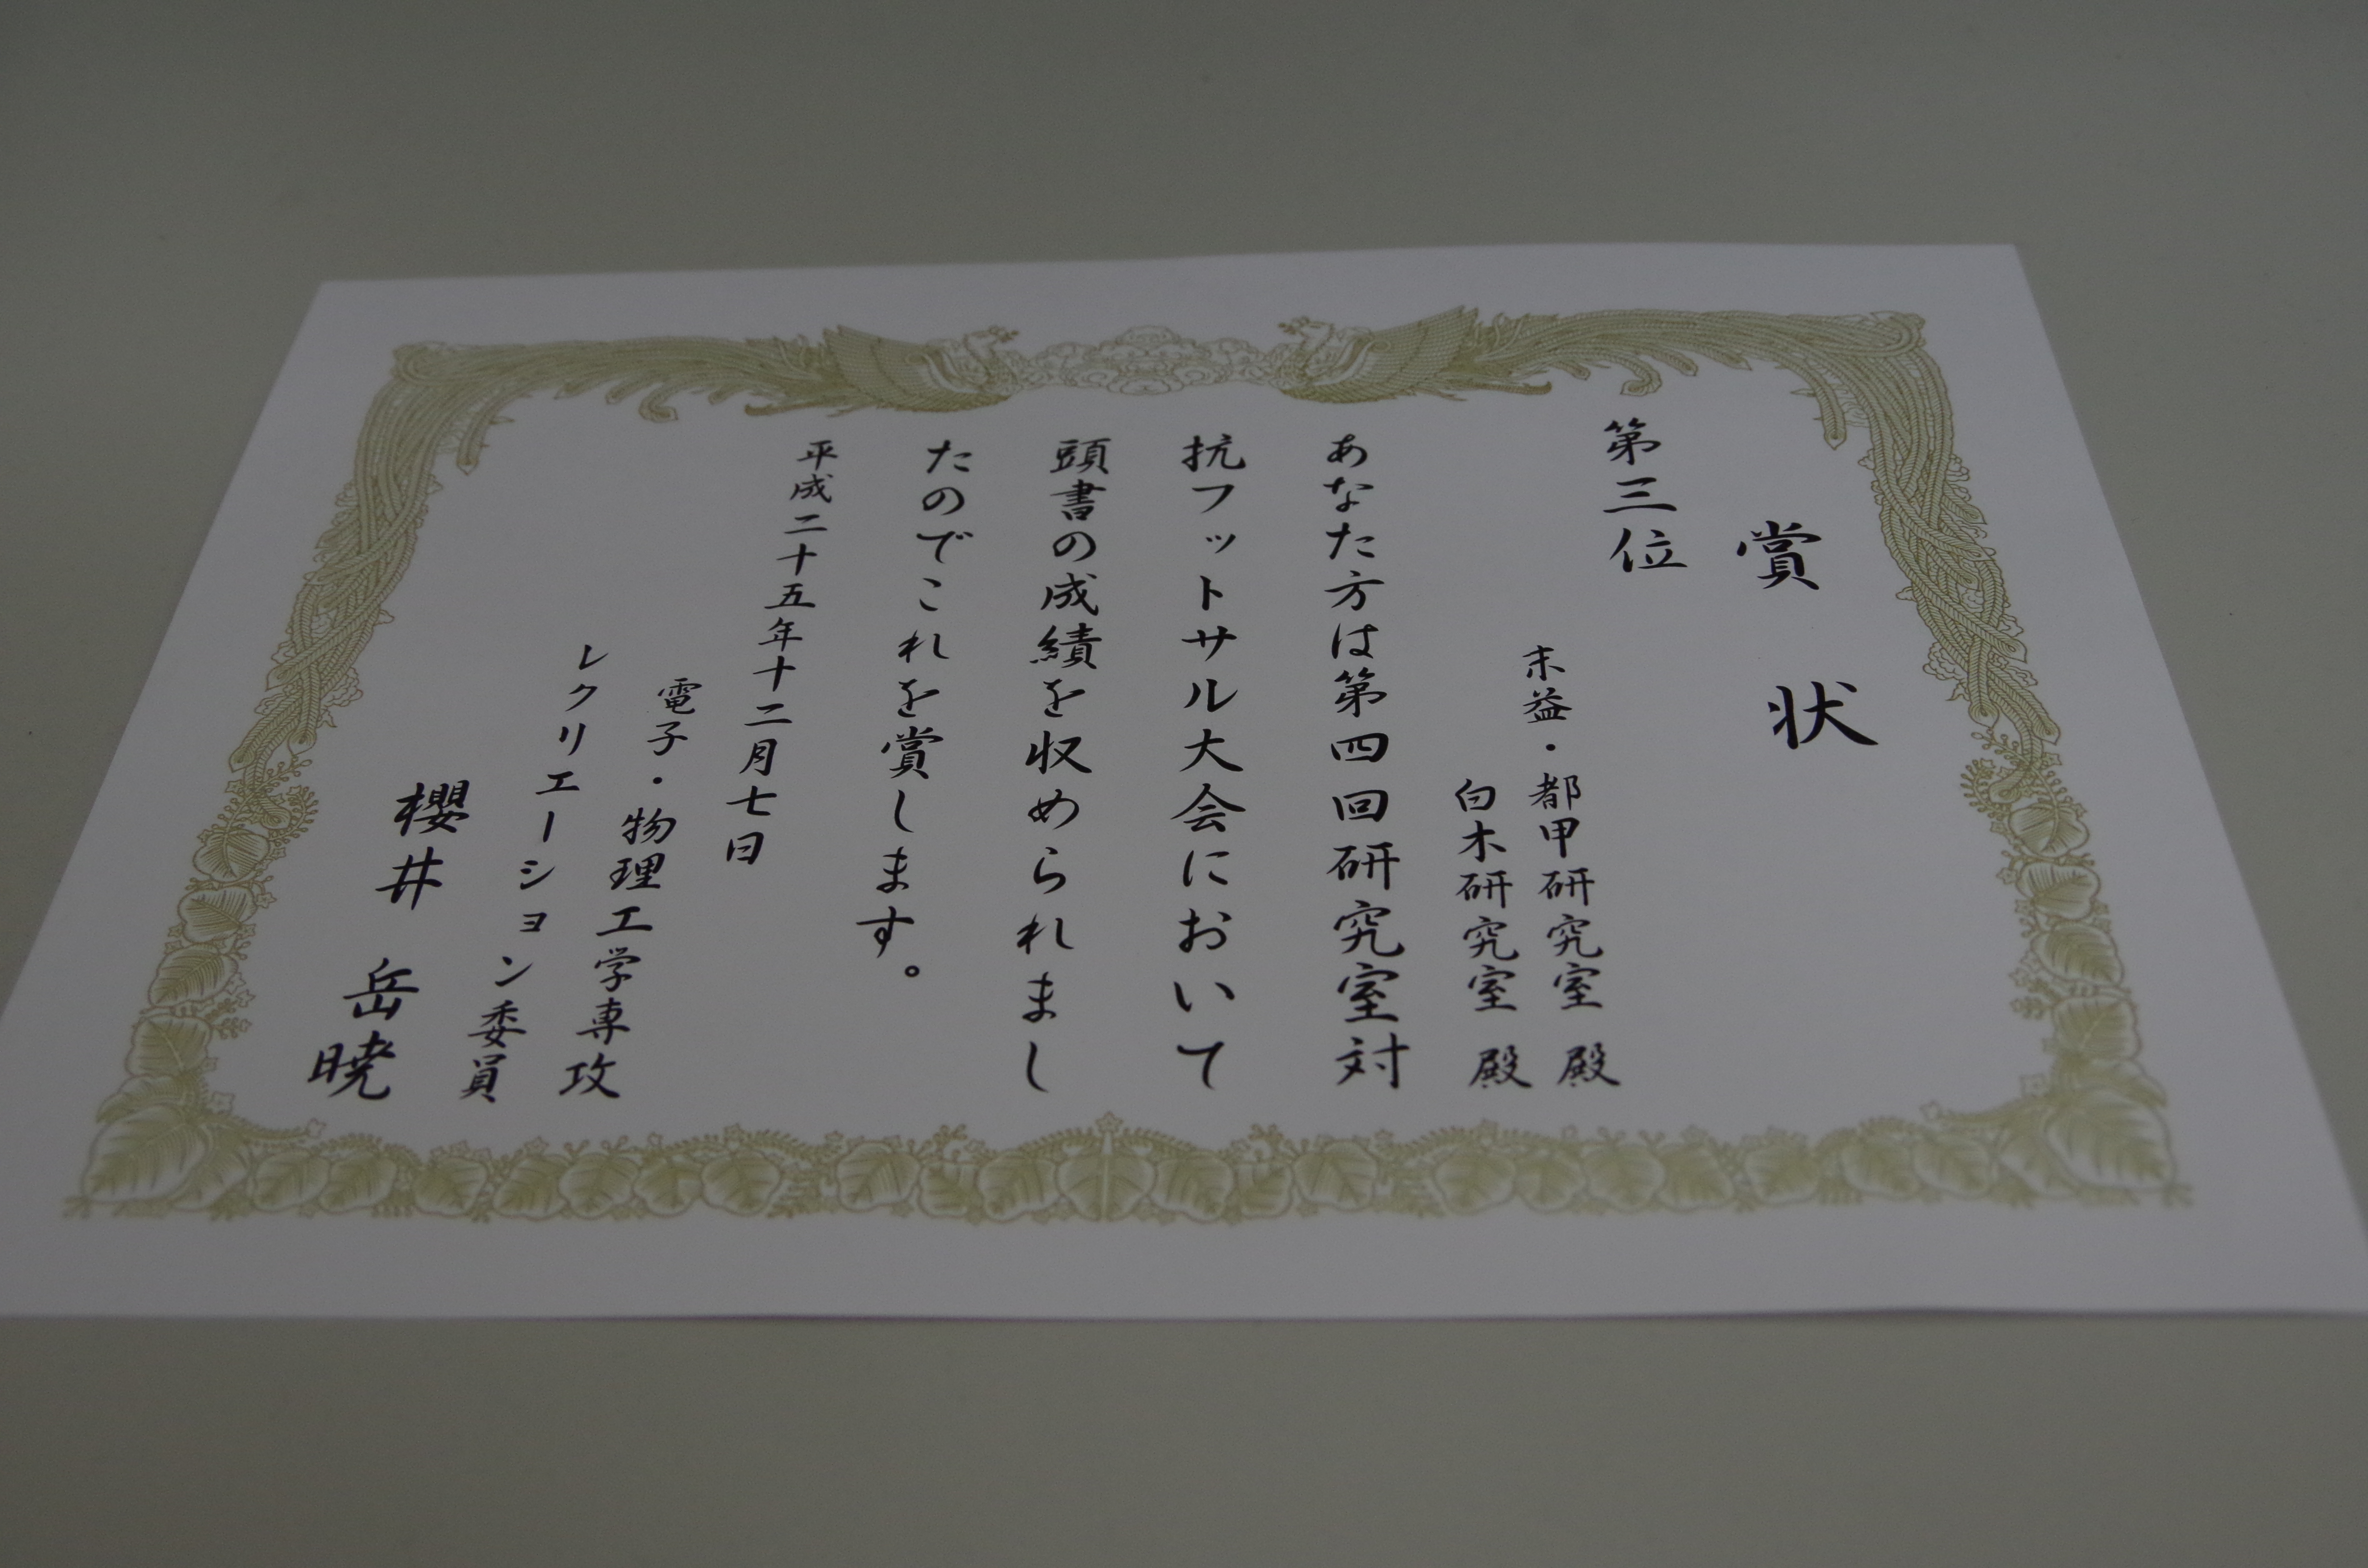 賞状
第三位
末益・都甲研究室 殿
白木研究室 殿
あなた方は第四回研究室対
抗フットサル大会において
頭書の成績を収められまし
たのでこれを賞します。
平成二十五年十二月七日
電子・物理工学専攻
レクリエーション委員
櫻井 岳暁